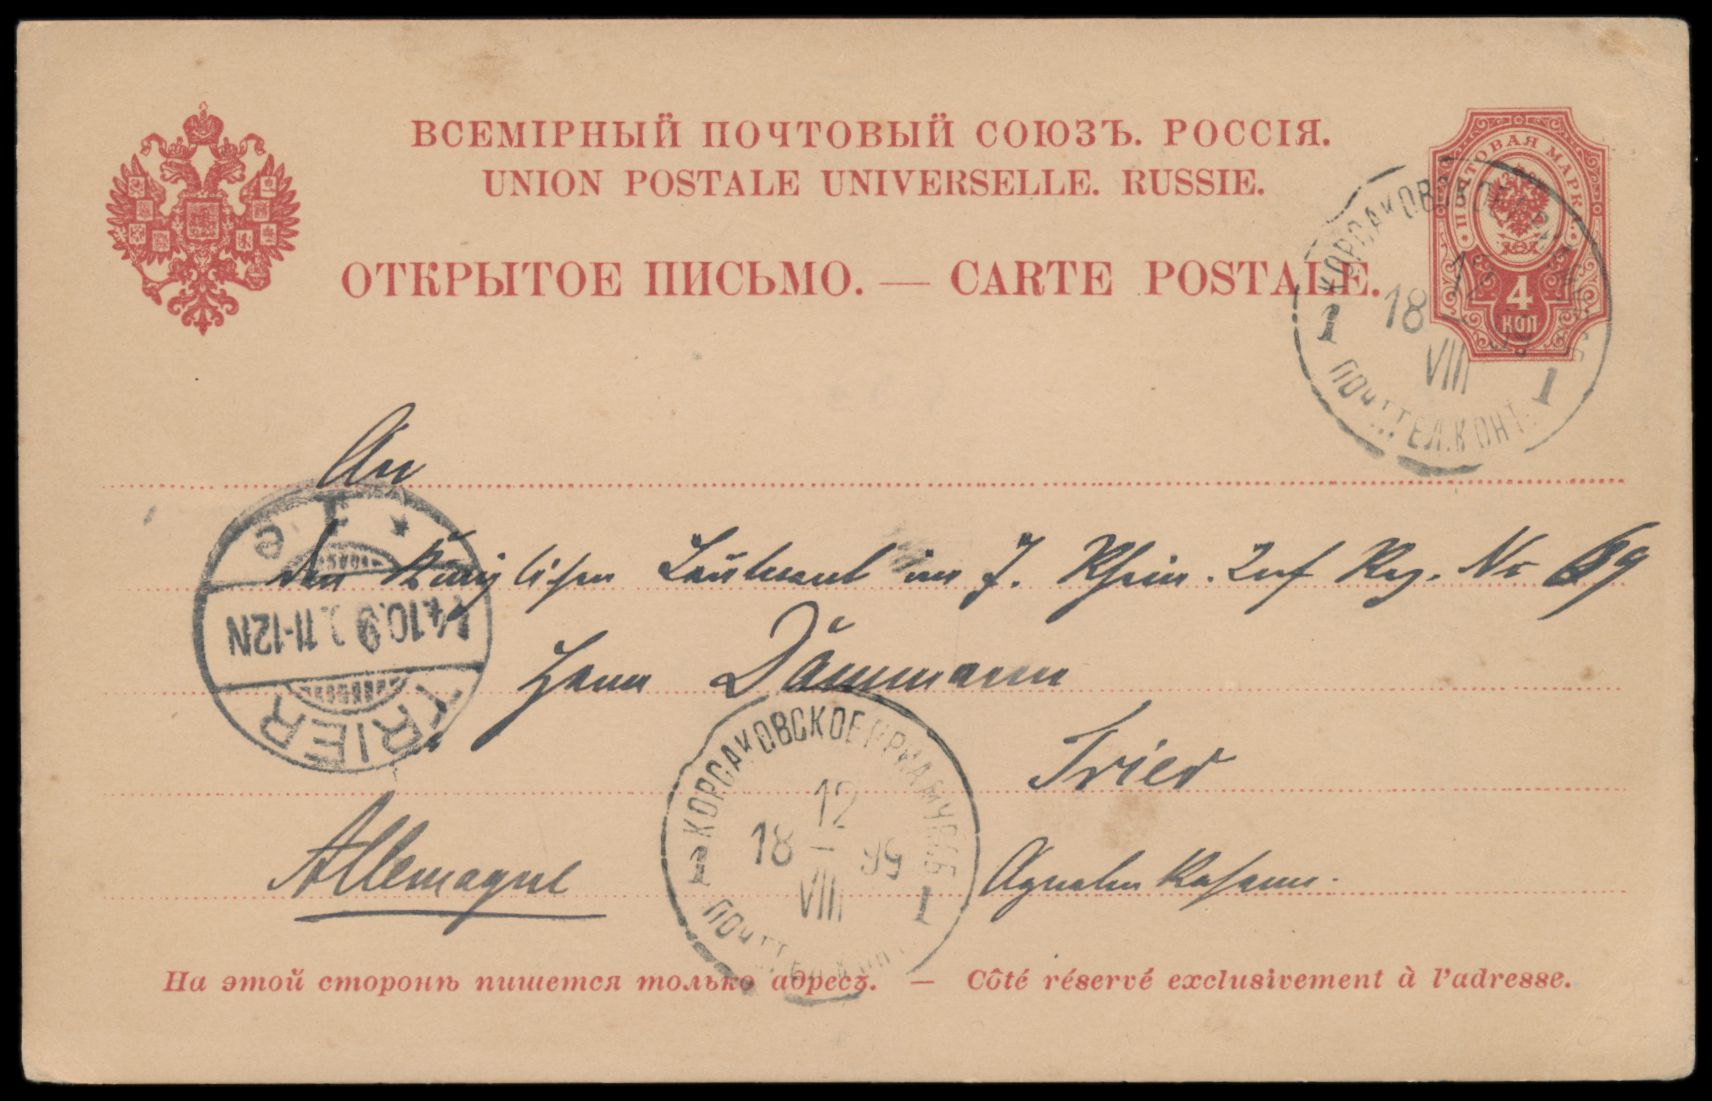 ВСЕМІРНЫЙ ПОЧТОВЫЙ СОЮЗЪ. РОССІЯ.
UNION POSTALE UNIVERSELLE. RUSSIE.
ОТКРЫТОЕ ПИСЬМО. — CARTE POSTALE.
ПОЧТОВАЯ МАРКА
4
КОП
КОРСАКОВСКОЕ
12
18 99
VIII
1 1
ПОЧ.ТЕЛ.КОНТ.
An
den Königlichen Leutnant im 7. Rhein. Inf Reg. Nr 69
Herrn Dämmann
Trier
Allemagne
TRIER
11-12N
КОРСАКОВСКОЕ ПРИАМУРСБ
12
18 — 99
VIII
1 1
ПОЧ.ТЕЛ.КОНТ.
На этой сторонѣ пишется только адресъ. — Côté réservé exclusivement à l'adresse.